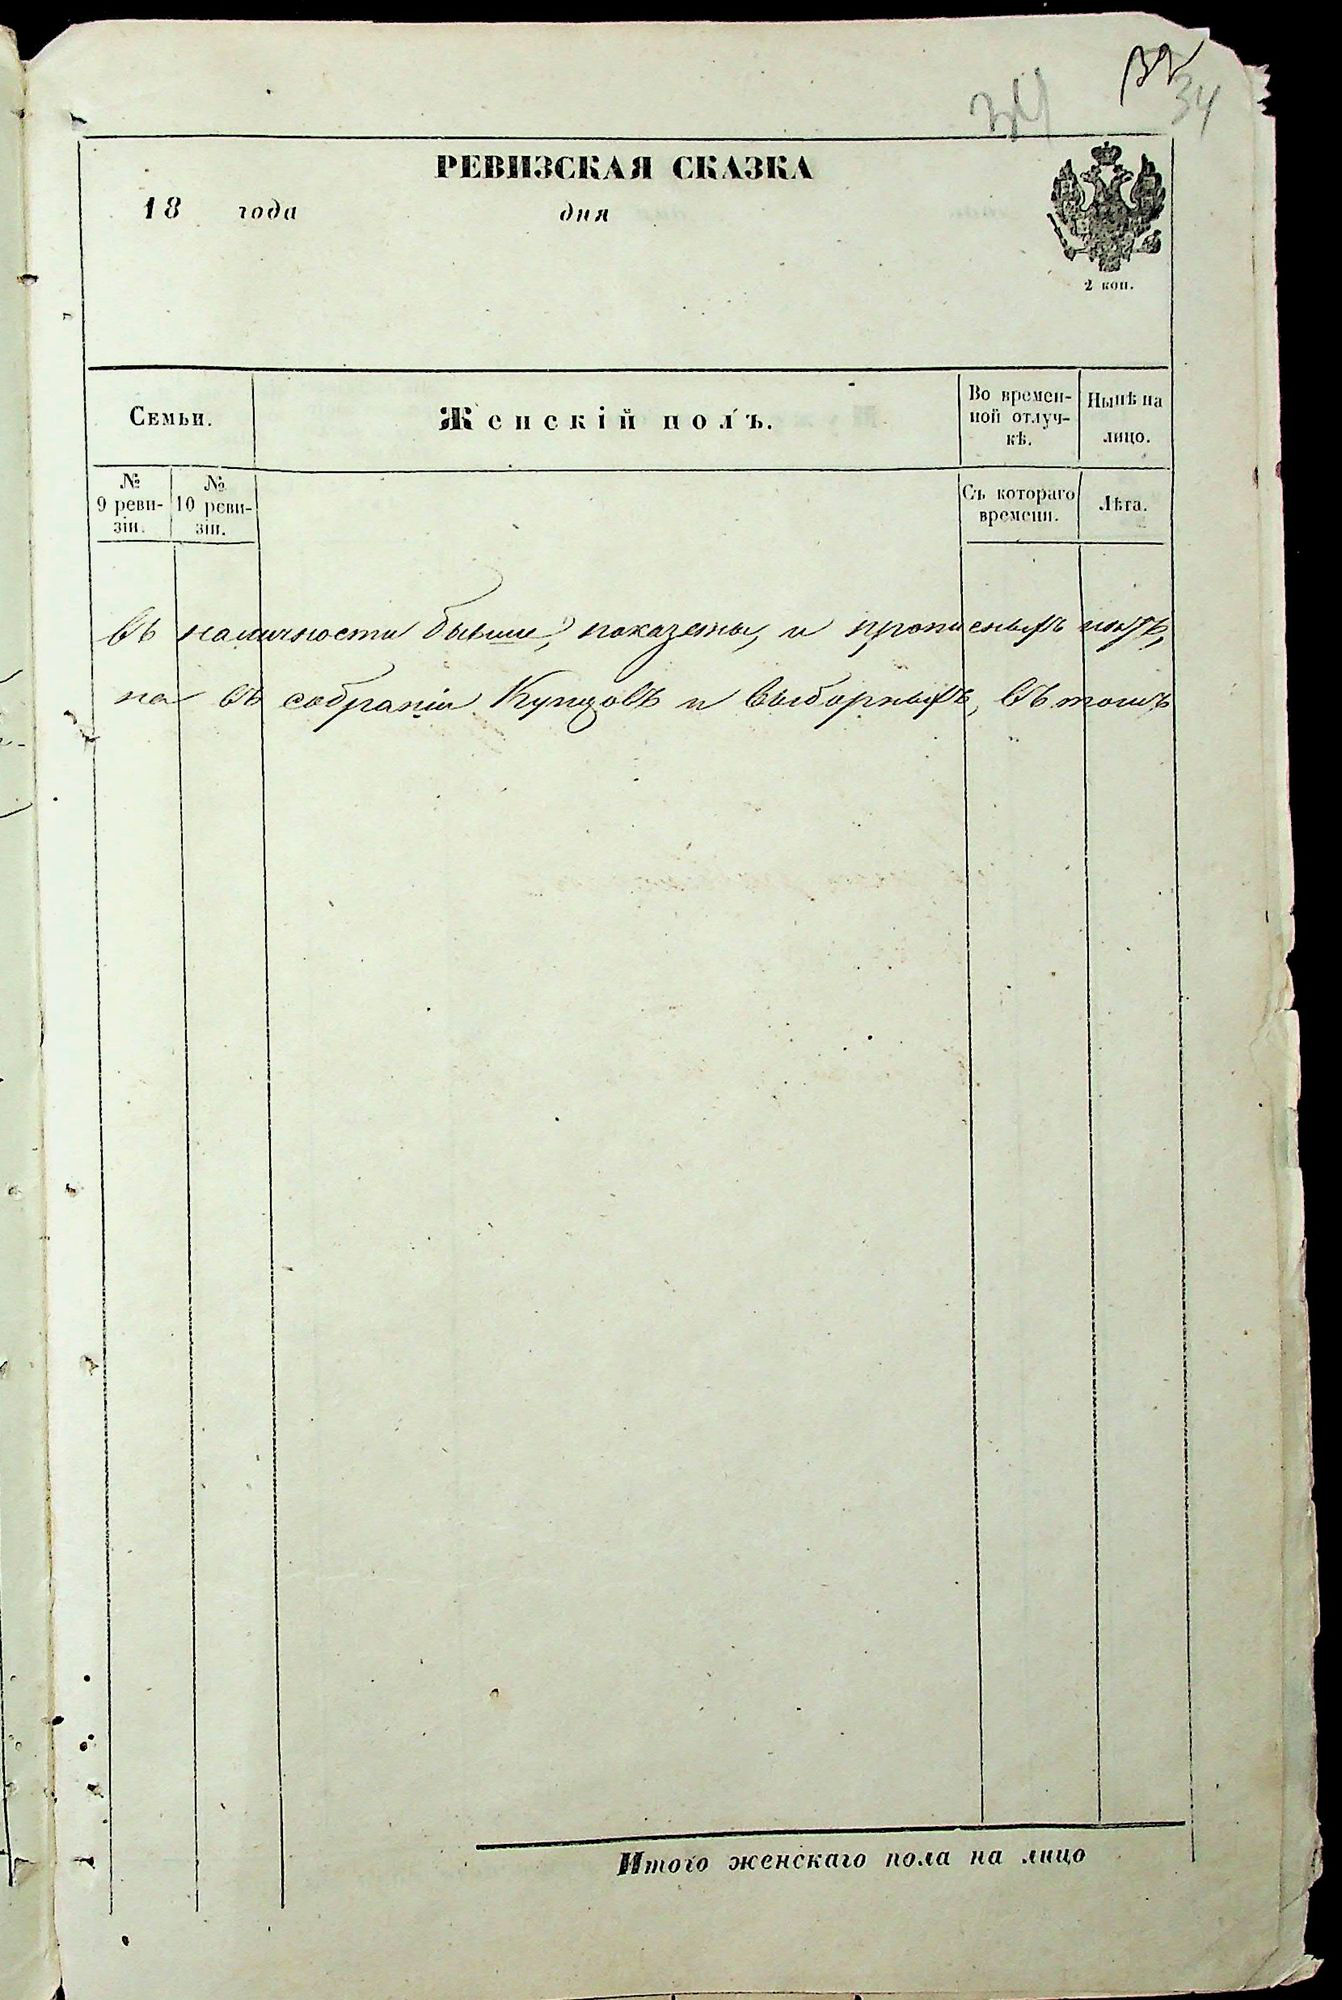 34
34
РЕВИЗСКАЯ СКАЗКА
18 года дня
2 коп.
Семьи.
Женскій полъ.
Во времен-
ной отлуч-
кѣ.
Нынѣ на
лицо.
№
9 реви-
зіи.
№
10 реви-
зіи.
Съ котораго
времени.
Лѣта.
въ наличности бывшіе, показаты, и прописныхъ нѣтъ,
на въ собраніи Купцовъ и выборныхъ, въ томъ
Итого женскаго пола на лицо